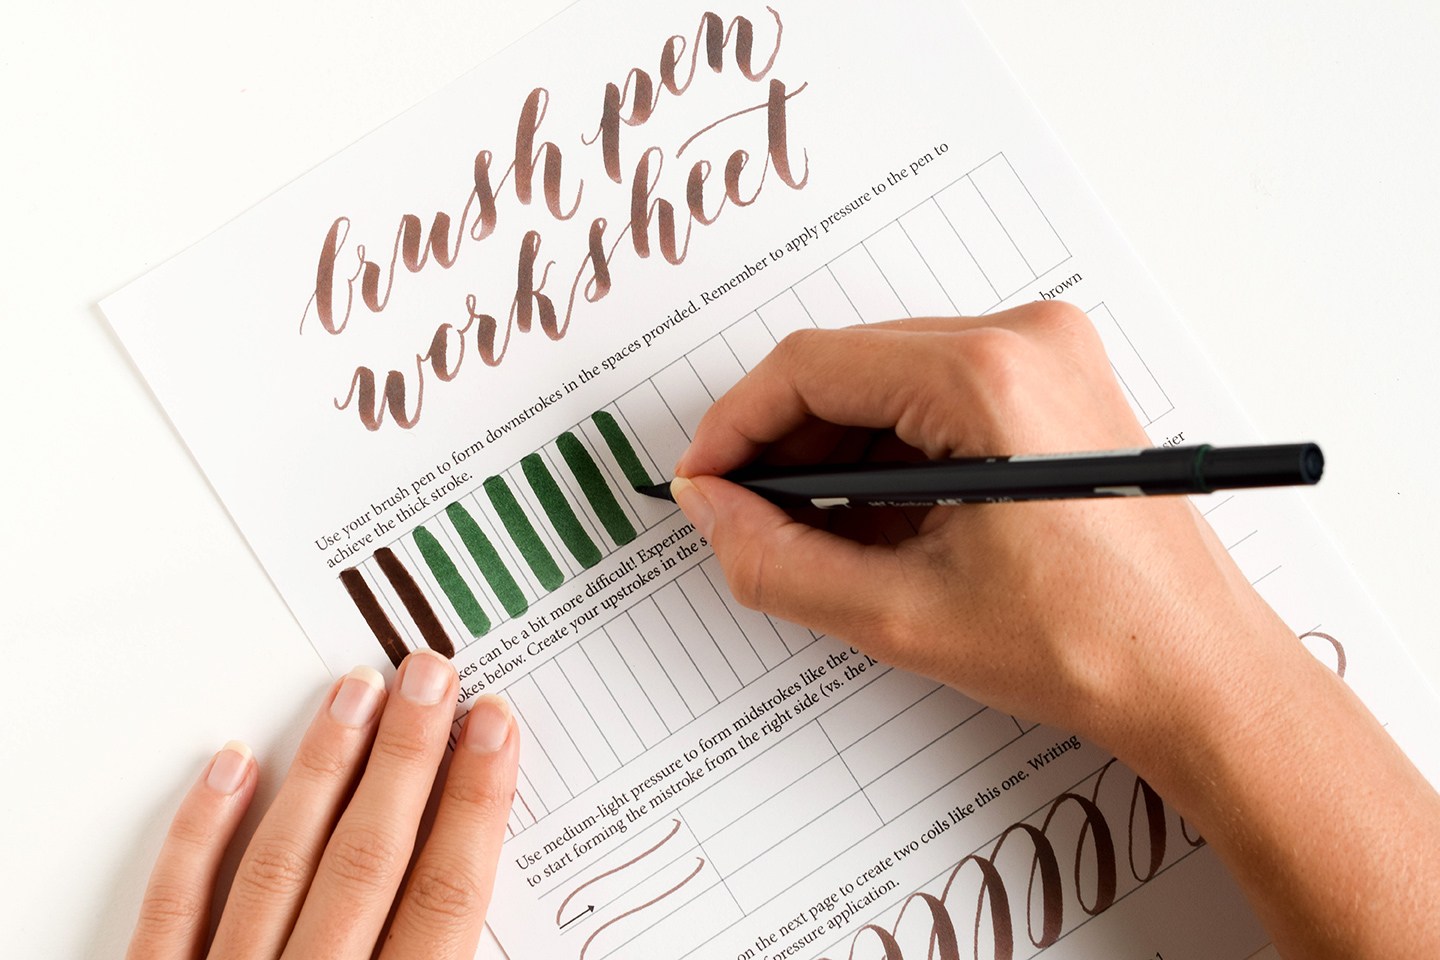 brush pen
worksheet
Use your brush pen to form downstrokes in the spaces provided. Remember to apply pressure to the pen to
achieve the thick stroke.
can be a bit more difficult! brown
below. Create your upstrokes in the
Use medium-light pressure to form midstrokes like the
to start forming the mistroke from the right side (vs. the
on the next page to create two coils like this one. Writing
pressure application.
Tombow